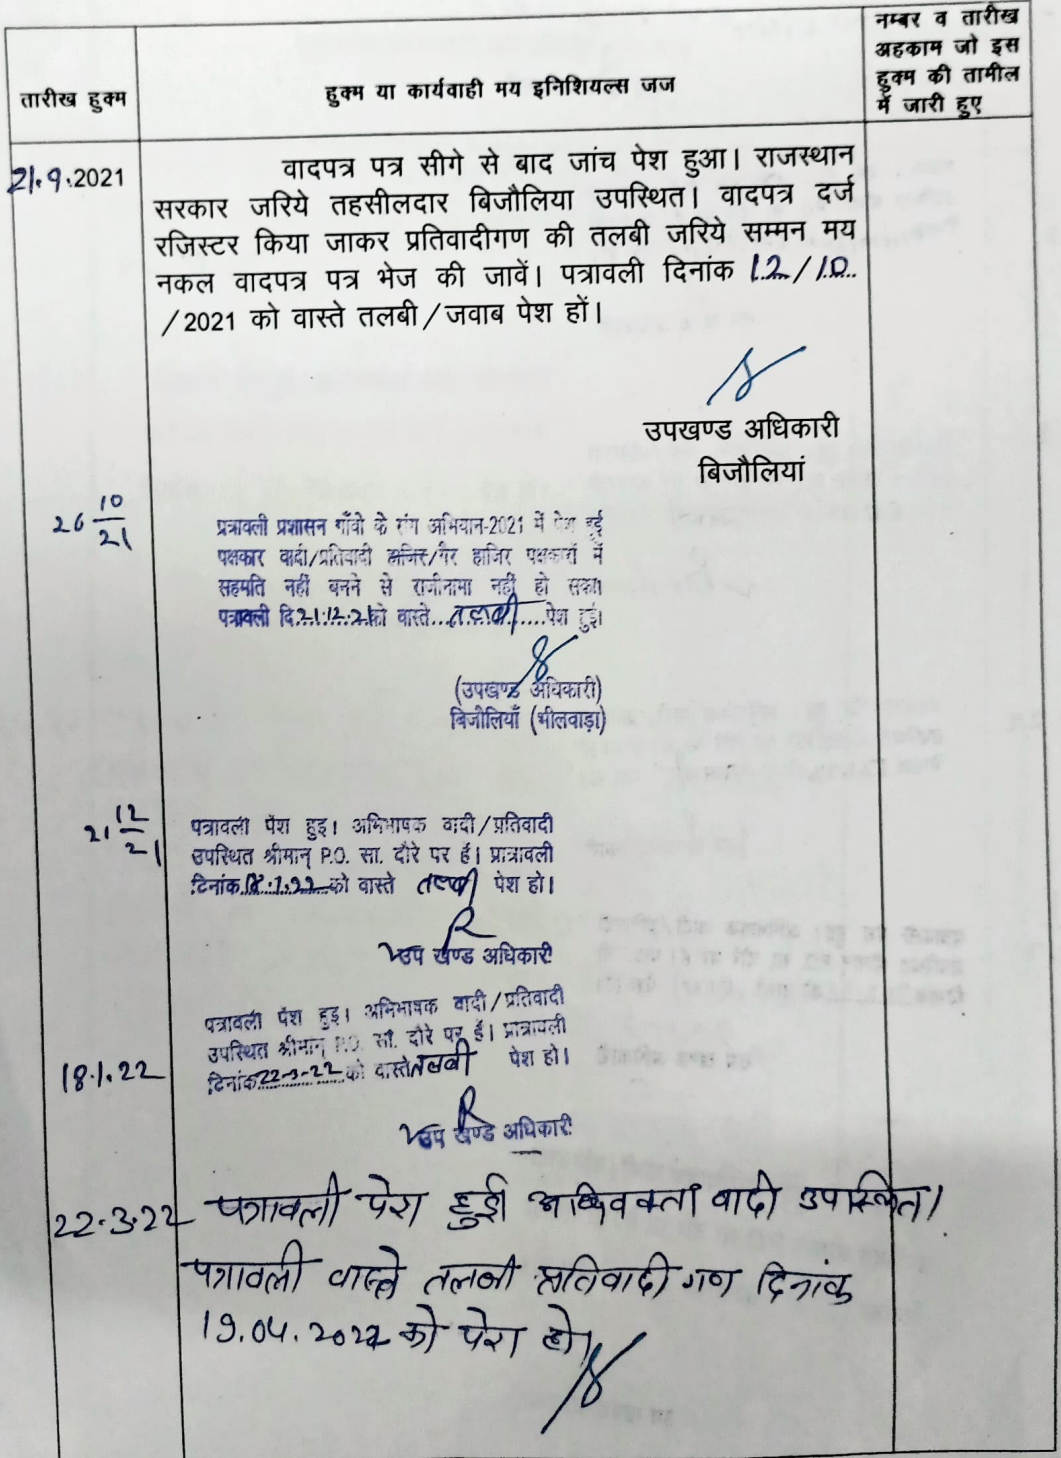 तारीख हुक्म
हुक्म या कार्यवाही मय इनिशियल्स जज
नम्बर व तारीख
अहकाम जो इस
हुक्म की तामील
में जारी हुए
21.9.2021
वादपत्र पत्र सीगे से बाद जांच पेश हुआ। राजस्थान
सरकार जरिये तहसीलदार बिजौलिया उपस्थित। वादपत्र दर्ज
रजिस्टर किया जाकर प्रतिवादीगण की तलबी जरिये सम्मन मय
नकल वादपत्र पत्र भेज की जावें। पत्रावली दिनांक 12/10
/2021 को वास्ते तलबी/जवाब पेश हों।
उपखण्ड अधिकारी
बिजौलियां
26 10/21
प्रत्रावली प्रशासन गाँवो के संग अभियान-2021 में पेश हुई
पक्षकार वादी/प्रतिवादी हाजिर/गैर हाजिर पक्षकारों में
सहमति नहीं बनने से राजीनामा नहीं हो सका।
पत्रावली दि.21.12.21को वास्ते...तलबी.....पेश हुई।
(उपखण्ड अधिकारी)
बिजौलियाँ (भीलवाड़ा)
21 12/21
पत्रावली पेश हुइ। अभिभाषक वादी/प्रतिवादी
उपस्थित श्रीमान् P.O. सा. दौरे पर हैं। प्रात्रावली
दिनांक 18.1.22 को वास्ते तलबी पेश हो।
उप खण्ड अधिकारी
पत्रावली पेश हुइ। अभिभाषक वादी/प्रतिवादी
उपस्थित श्रीमान् P.O. सा. दौरे पर हैं। प्रात्रावली
18.1.22
दिनांक 22-3-22 को वास्ते तलबी पेश हो।
उप खण्ड अधिकारी
22.3.22 पत्रावली पेश हुई अधिवक्ता वादी उपस्थित।
पत्रावली वास्ते तलबी प्रतिवादी गण दिनांक
19.04.2022 को पेश हो।